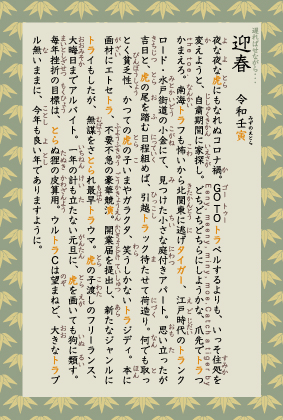 遅ればせながら…
迎春
令和壬寅
夜な夜な虎にもなれぬコロナ禍。GOTOトラベルするよりも、いっそ住処を
変えようと、自粛期間に家探し。どちどちどちらにしようかな、爪先でトラ
かまえろ。南海トラフも怖いから北関東に逃げタイガー、江戸時代のトランク
ロード、水戸街道の小金にて、見つけた小さな庭付きアパート。思い立ったが
吉日と、虎の尾を踏む日程組めば、引越トラック待たせて荷造り。何でも取っ
とく貧乏性、かつての虎の子いまやガラクタ、笑うしかないトラジディ。本に
画材にエトセトラ、不要不急の豪華競演、開業届を提出し、新たなジャンルに
トライもしたが、無謀をさとられ最早トラウマ。虎の子渡しのフリーランス、
大晦日までアルバイト。一年の計も立たない元旦に、虎を画いても狗に類す。
毎年挫折の目標はとらぬ狸の皮算用。ウルトラCは望まねど、大きなトラブ
ル無いままに、今年も良い年でありますように。